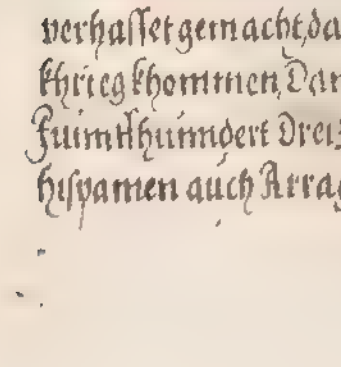 verhasset gemacht, da
khrieg khommen, Dar
Fuimfhunndert Drei
hispanien auch Arrag